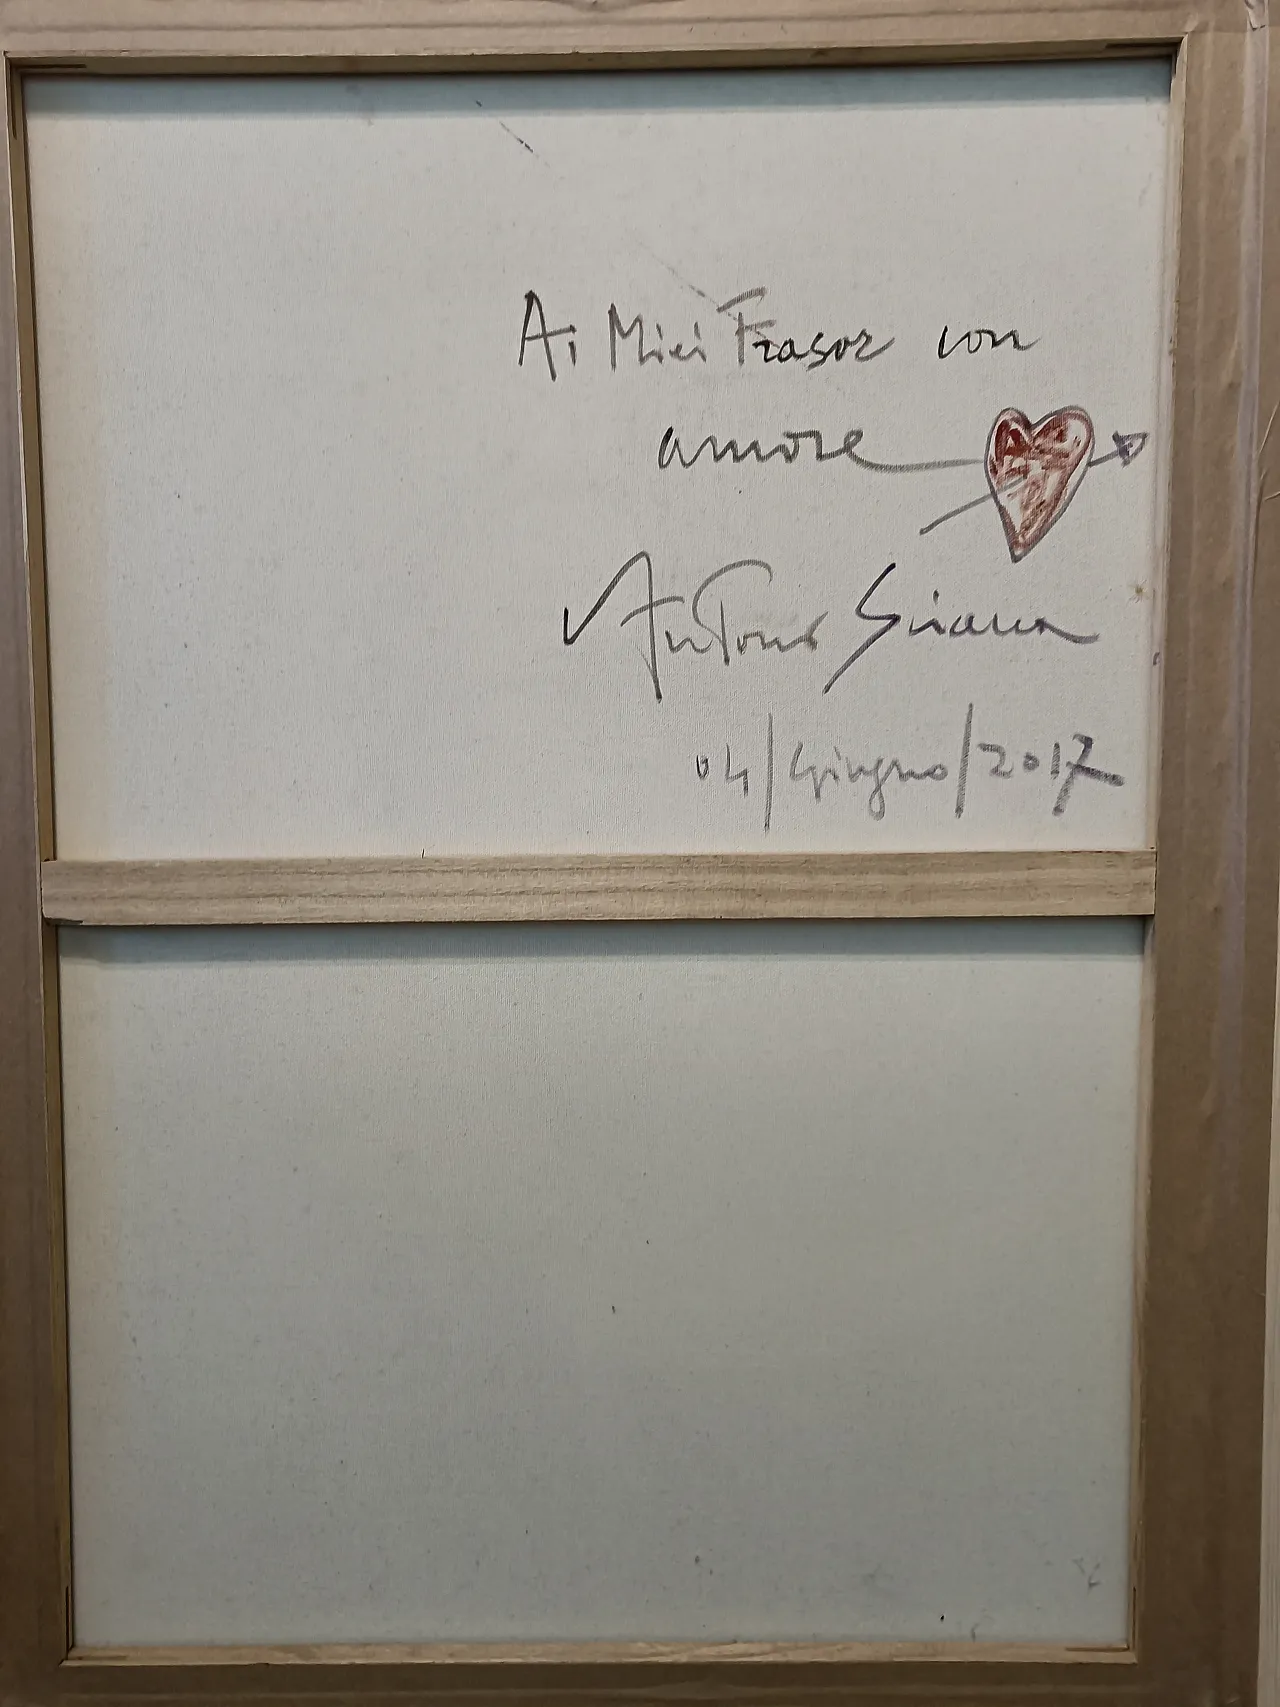 Ai Miei Frasor con
amore
Antonio
04/Giugno/2017